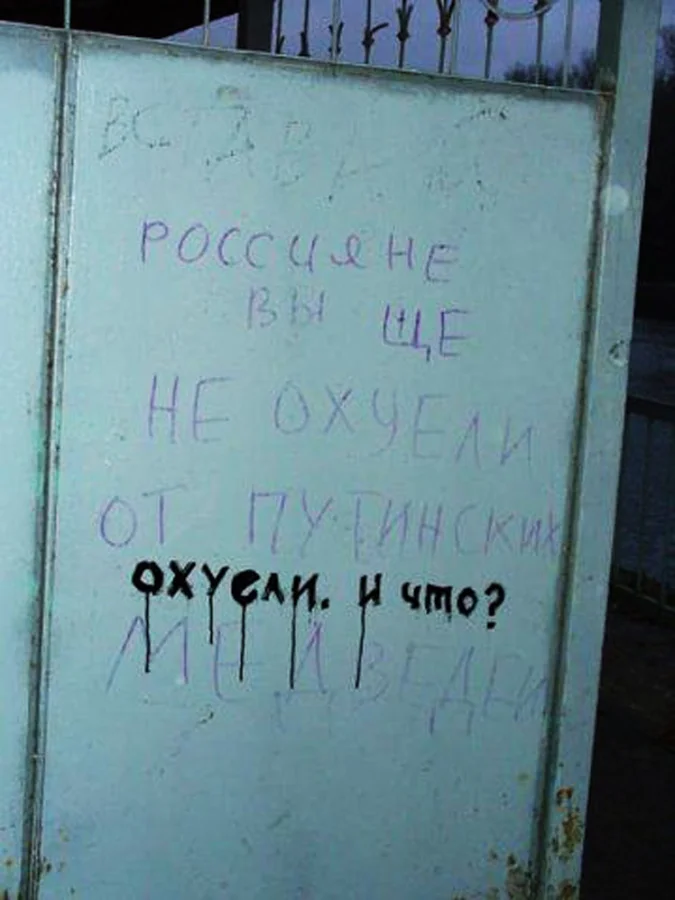 РОССИЯНЕ
ВЫ ЩЕ
НЕ ОХУЕЛИ
ОТ ПУТИНСКИХ
ОХУЕЛИ. И ЧТО?